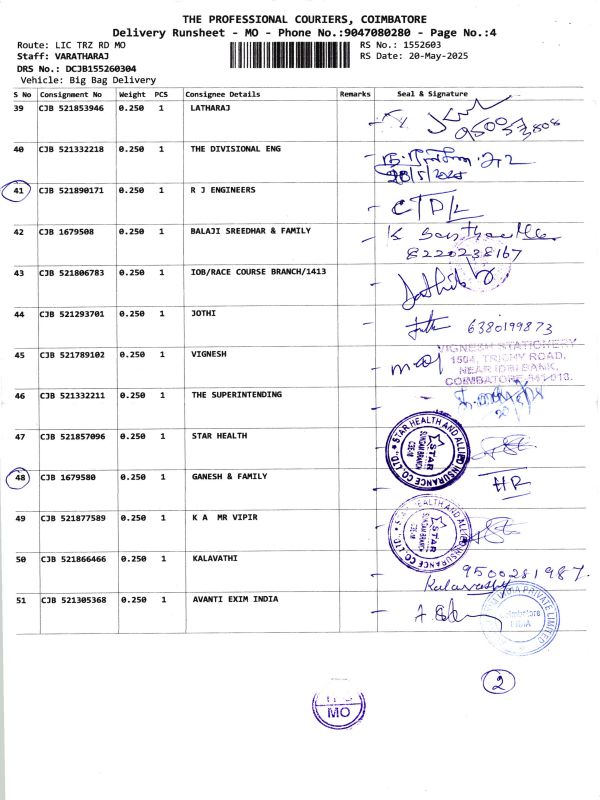 THE PROFESSIONAL COURIERS, COIMBATORE
Delivery Runsheet - MO - Phone No.:9047080280 - Page No.:4
Route: LIC TRZ RD MO RS No.: 1552603
Staff: VARATHARAJ RS Date: 20-May-2025
DRS No.: DCJB155260304
Vehicle: Big Bag Delivery
S No Consignment No Weight PCS Consignee Details Remarks Seal & Signature
39 CJB 521853946 0.250 1 LATHARAJ
40 CJB 521332218 0.250 1 THE DIVISIONAL ENG
20/5/2025
41 CJB 521890171 0.250 1 R J ENGINEERS
42 CJB 1679508 0.250 1 BALAJI SREEDHAR & FAMILY
8220238167
43 CJB 521806783 0.250 1 IOB/RACE COURSE BRANCH/1413
44 CJB 521293701 0.250 1 JOTHI
6380199873
45 CJB 521789102 0.250 1 VIGNESH
VIGNESH STATICHERY
1504, TRICHY ROAD,
NEAR IDBI BANK,
COIMBATORE-641 018.
46 CJB 521332211 0.250 1 THE SUPERINTENDING
47 CJB 521857096 0.250 1 STAR HEALTH
STAR HEALTH AND ALLIED INSURANCE CO. LTD.,
STAR
SUNGAM BRANCH
CBE-18
48 CJB 1679580 0.250 1 GANESH & FAMILY
HR
49 CJB 521877589 0.250 1 K A MR VIPIR
STAR HEALTH AND ALLIED INSURANCE CO. LTD.,
STAR
SUNGAM BRANCH
CBE-18
50 CJB 521866466 0.250 1 KALAVATHI
9500281987.
Kalavathy
51 CJB 521305368 0.250 1 AVANTI EXIM INDIA
PRIVATE LIMITED
Coimbatore
INDIA
2
MO